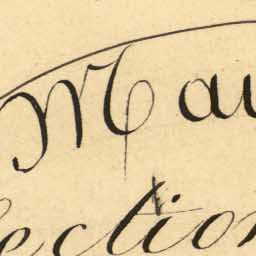 Mau
lection